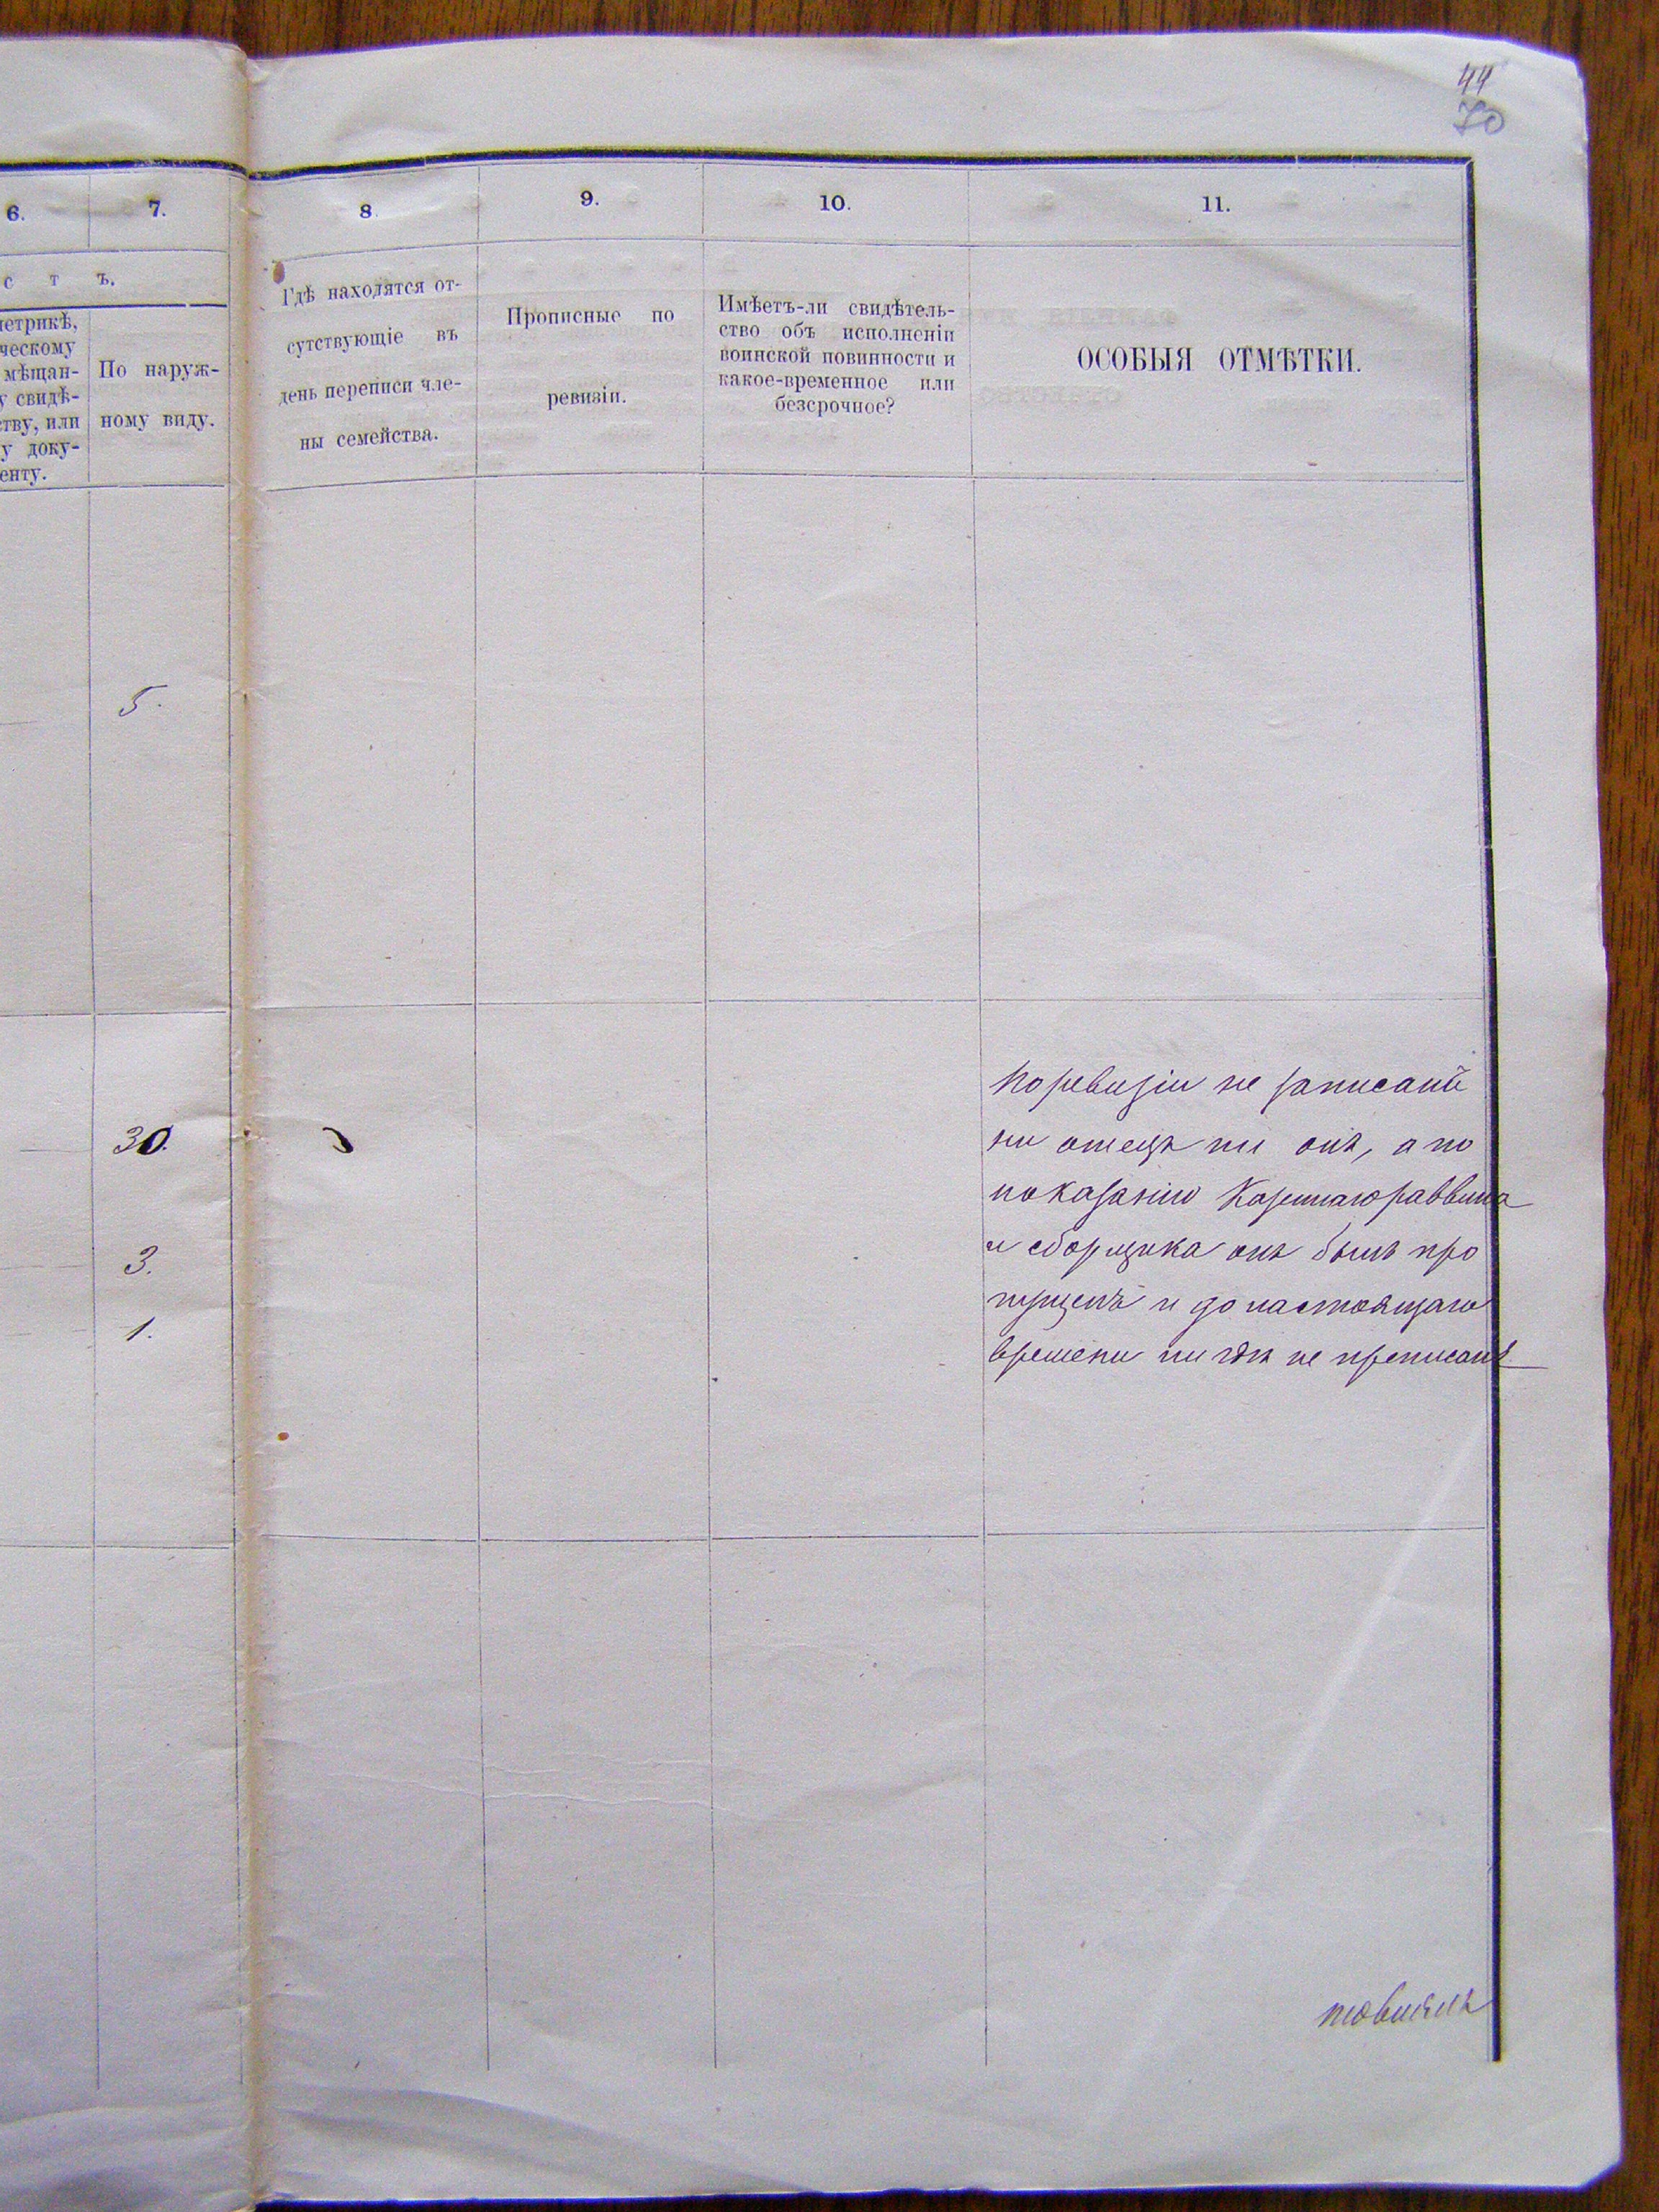 44
70
6.
7.
8.
9.
10.
11.
с т ъ.
етрикѣ,
ческому
мѣщан-
у свидѣ-
ству, или
у доку-
енту.
По наруж-
ному виду.
Гдѣ находятся от-
сутствующіе въ
день переписи чле-
ны семейства.
Прописные по
ревизіи.
Имѣетъ-ли свидѣтель-
ство объ исполненіи
воинской повинности и
какое-временное или
безсрочное?
ОСОБЫЯ ОТМѢТКИ.
5.
30.
3.
1.
По ревизіи не записанъ
ни отецъ ни онъ, а по
показанію Казеннаго раввина
и сборщика онъ былъ про
пущенъ и до настоящаго
времени ни гдѣ не приписанъ